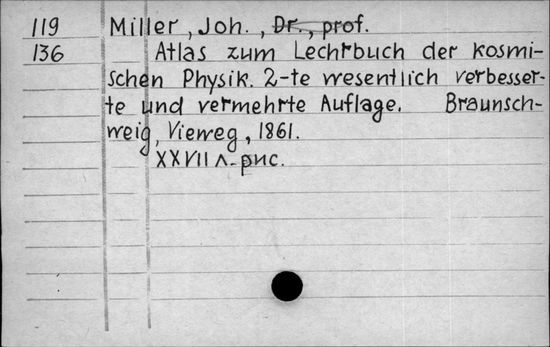 119 Miller, Joh., Dr., prof.
136 Atlas zum Lechrbuch der kosmi-
schen Physik. 2-te wesentlich verbesser-
te und vermehrte Auflage. Braunsch-
weig, Vieweg, 1861.
XXVII л. рис.